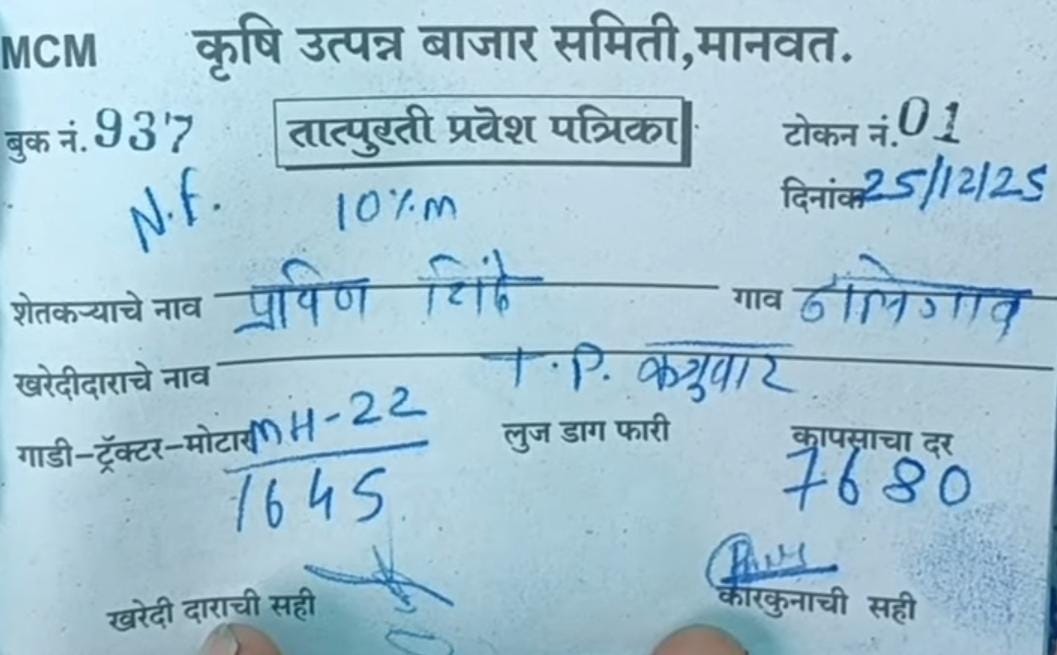 MCM कृषि उत्पन्न बाजार समिती,मानवत.
बुक नं. 937 तात्पुरती प्रवेश पत्रिका टोकन नं. 01
N.F. 10%.m दिनांक 25/12/25
शेतकऱ्याचे नाव प्रविण शिंदे गाव
खरेदीदाराचे नाव T.P.
गाडी-ट्रॅक्टर-मोटार MH-22 लुज डाग फारी कापसाचा दर
1645 7680
खरेदी दाराची सही कारकुनाची सही